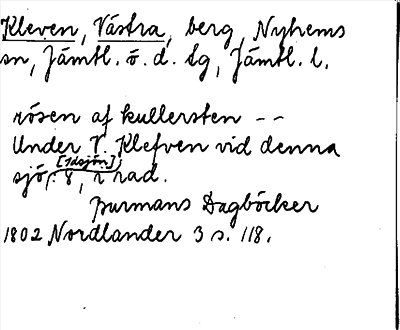 Kleven, Västra, berg, Nyhems
sn, Jämtl. ö. d. tg, Jämtl. l.
rösen af kullersten --
Under V. Klefven vid denna
[Idsjön]
sjö, : 8, i rad.
Burmans Dagböcker
1802 Nordlander 3 s. 118.